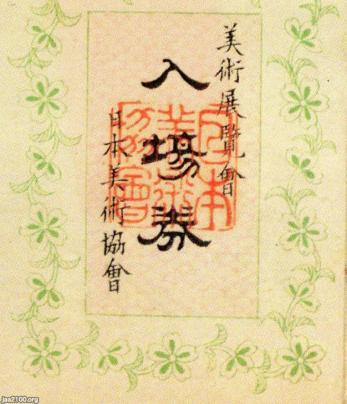 美術展覽會
入場券
日本美術協會
日本
美術
協會
Jaa2100.org